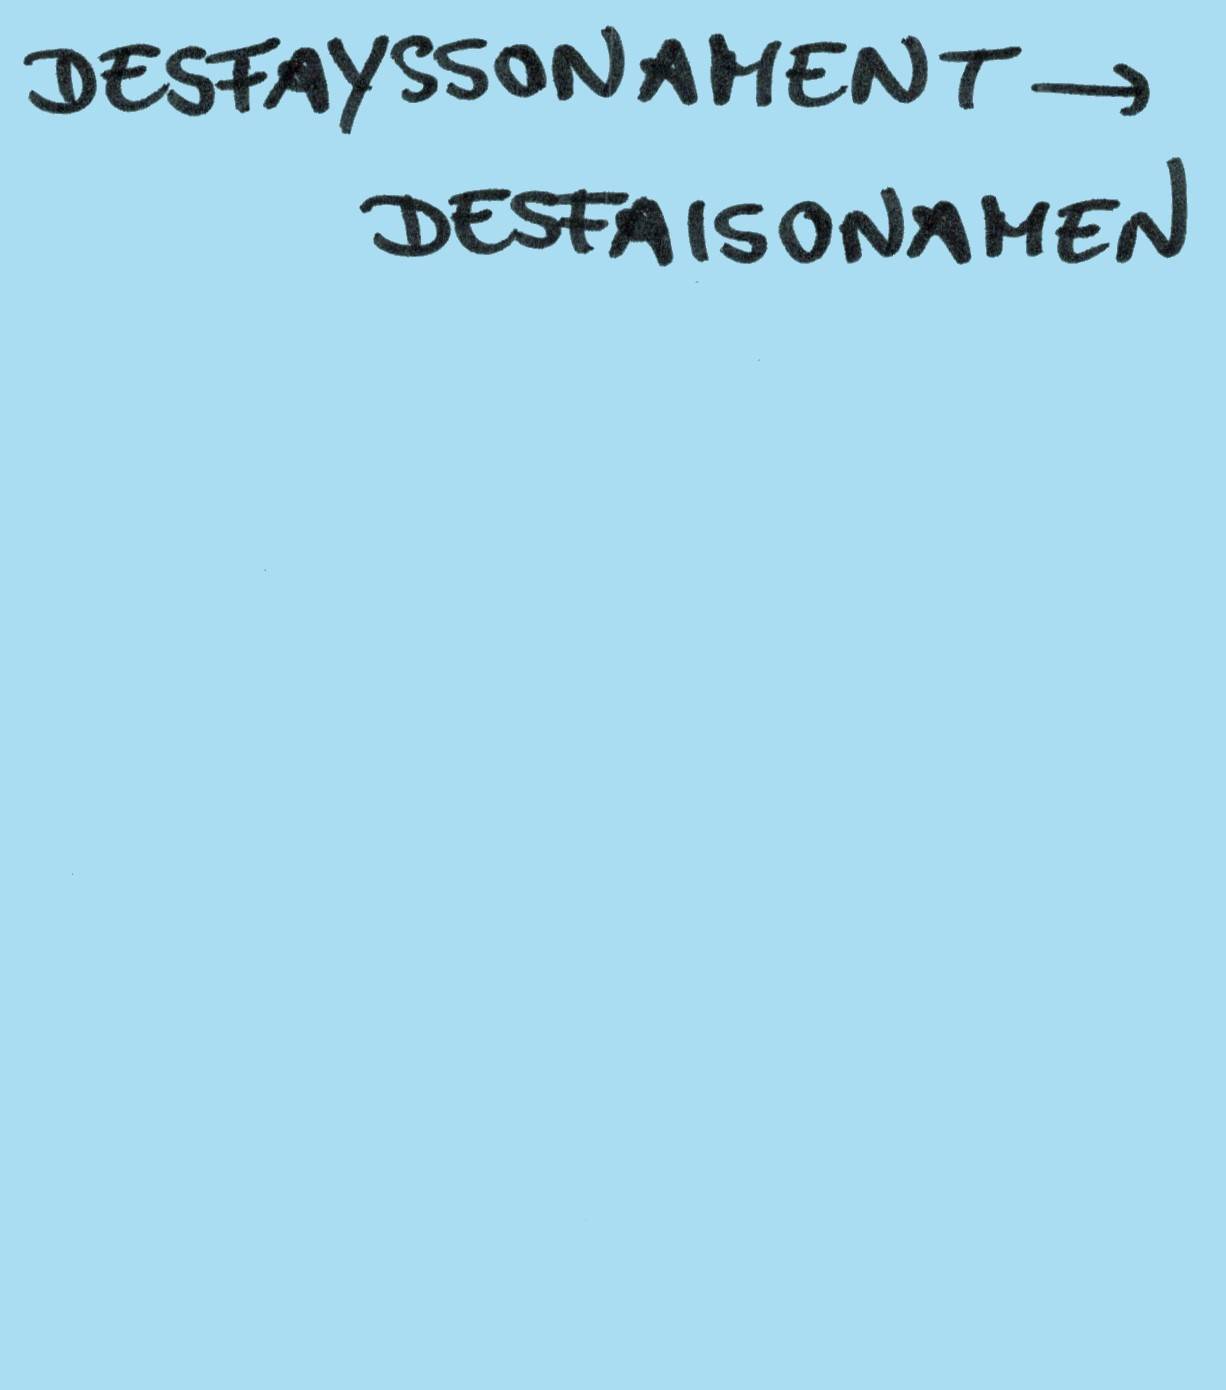 DESFAYSSONAMENT →
DESFAISONAMEN